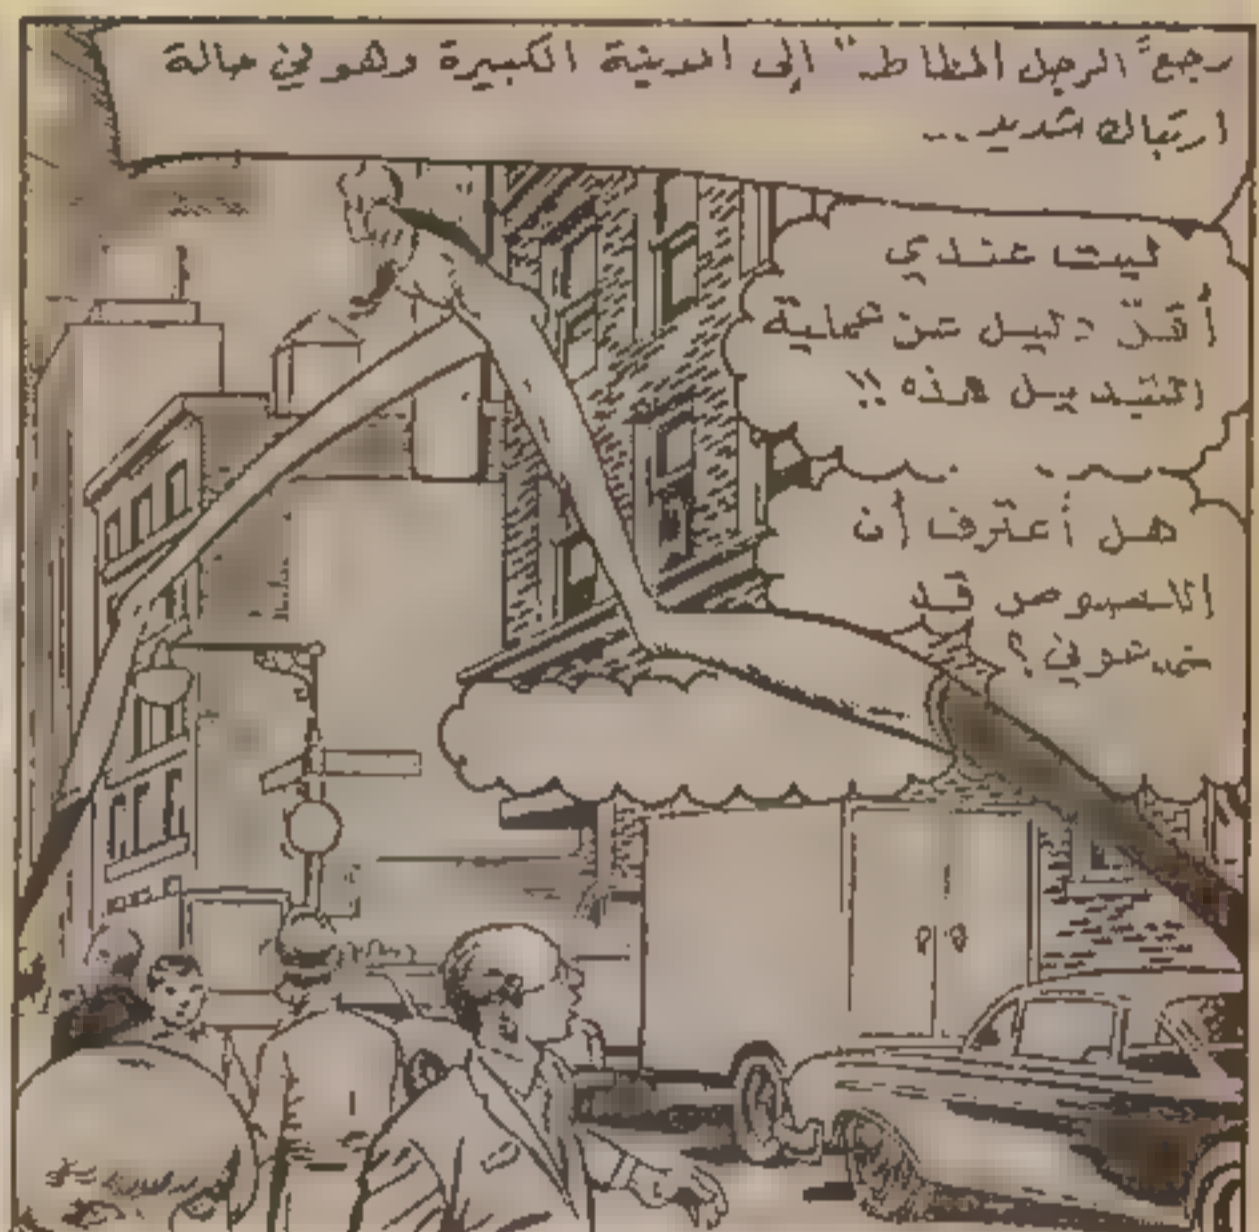 رجع "الرجل المطاط" إلى المدينة الكبيرة وهو في حالة
ارتباك شديد..
ليت عندي
أقلّ دليل عن عملية
التبديل هذه !!
هل أعترف أن
اللصوص قد
خدعوني ؟